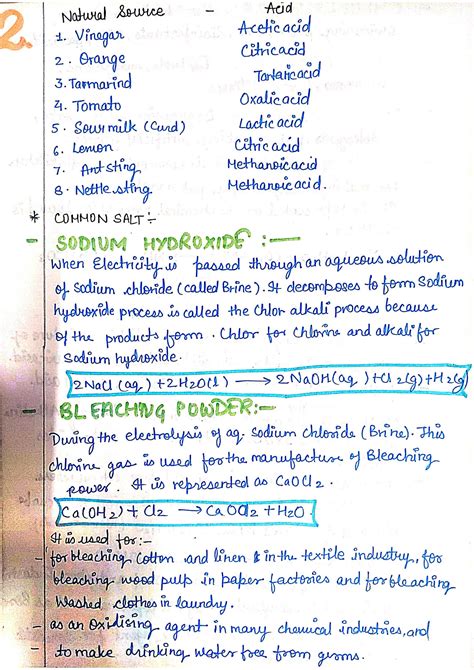 2.
Natural Source - Acid
1. Vinegar Acetic acid
2. Orange Citric acid
3. Tarmarind Tartaric acid
4. Tomato Oxalic acid
5. Sour milk (Curd) Lactic acid
6. Lemon Citric acid
7. Ant sting Methanoic acid
8. Nettle sting Methanoic acid.
* COMMON SALT:-
- SODIUM HYDROXIDE :-
When Electricity is passed through an aqueous solution
of Sodium chloride (called Brine). It decomposes to form Sodium
hydroxide process is called the Chlor alkali process because
of the products form. Chlor for Chlorine and alkali for
Sodium hydroxide.
2NaCl (aq) + 2H2O(l) → 2NaOH(aq) + Cl2(g) + H2(g)
- BLEACHING POWDER:-
During the electrolysis of aq. Sodium Chloride (Brine). This
chlorine gas is used for the manufacture of Bleaching
power. It is represented as CaOCl2.
Ca(OH2) + Cl2 → CaOCl2 + H2O
It is used for:-
- for bleaching Cotton and linen & in the textile industry, for
bleaching wood pulp in paper factories and for bleaching
Washed clothes in laundry.
- as an Oxidising agent in many chemical industries, and
- to make drinking water free from germs.